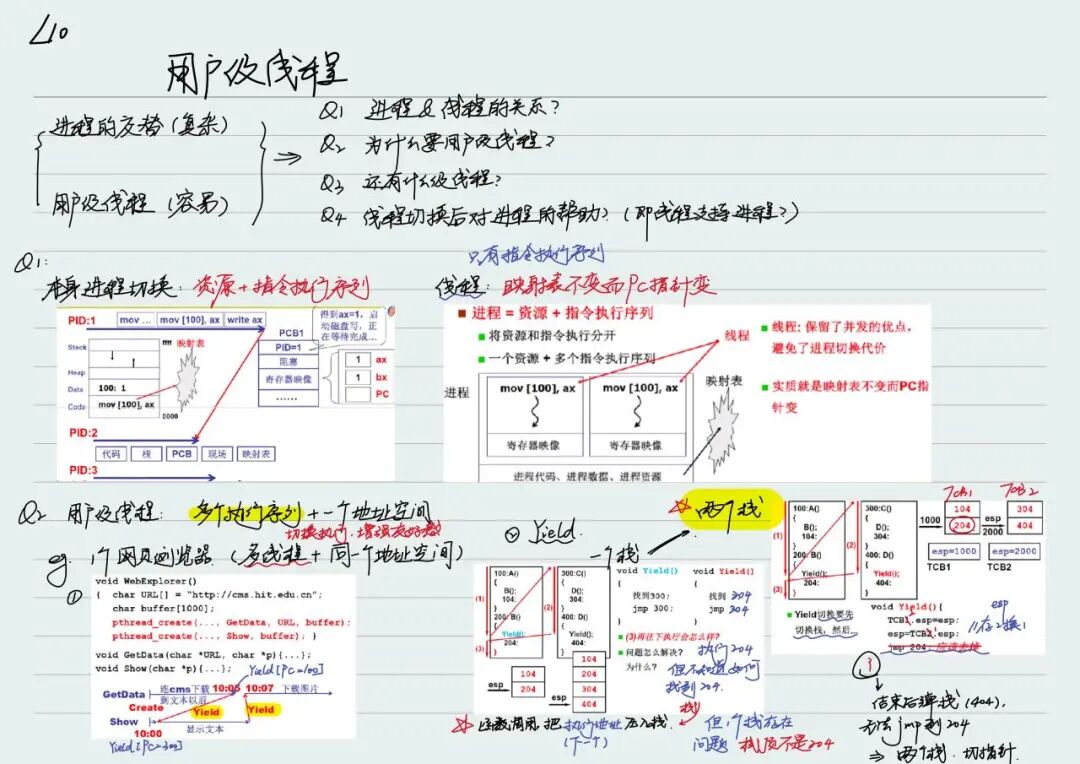 L10
用户级线程
进程的交替（复杂）
用户级线程（容易）
Q1 进程&线程的关系？
Q2 为什么要用户级线程？
Q3 还有什么级线程？
Q4 线程切换后对进程的帮助？（即线程支持进程？）
Q1:
本身进程切换：资源+指令执行序列
只有指令执行序列
线程：映射表不变而PC指针变
PID:1
mov ...
mov [100], ax
write ax
PCB1
PID=1
阻塞
寄存器映像
......
得到ax=1，启
动磁盘写，正
在等待完成...
1 ax
1 bx
PC
Stack
Heap
Data
Code
100: 1
mov [100], ax
映射表
0000
PID:2
代码 栈 PCB 现场 映射表
PID:3
进程 = 资源 + 指令执行序列
将资源和指令执行分开
一个资源 + 多个指令执行序列
线程
进程
mov [100], ax
mov [100], ax
寄存器映像
寄存器映像
映射表
进程代码、进程数据、进程资源
线程: 保留了并发的优点，
避免了进程切换代价
实质就是映射表不变而PC指
针变
Q2 用户级线程：多个执行序列+一个地址空间
切换执行，增强友好感
eg. 1个网页浏览器（多线程+同一个地址空间）
①
void WebExplorer()
{ char URL[] = "http://cms.hit.edu.cn";
char buffer[1000];
pthread_create(..., GetData, URL, buffer);
pthread_create(..., Show, buffer); }
void GetData(char *URL, char *p){...};
void Show(char *p){...};
Yield[PC=100]
GetData
连cms下载
到文本以后
10:05
10:07
下载图片
Create
Yield
Yield
Show
10:00
显示文本
Yield[PC=300]
② Yield.
一个栈
两个栈
100:A()
{
B();
104:
}
200: B()
{
Yield();
204:
}
300:C()
{
D();
304:
}
400: D()
{
Yield();
404:
}
(1)
(2)
(3)
void Yield()
{
找到300;
jmp 300;
}
void Yield()
{
找到 204
jmp 204
}
(3)再往下执行会怎么样？
问题怎么解决？
为什么？
执行204
但不知道如何
找到204.
esp
104
204
esp
104
204
304
404
函数调用，把执行地址压入栈
（下一个）
栈
但1个栈存在
问题 栈顶不是204
100:A()
{
B();
104:
}
200: B()
{
Yield();
204:
}
300:C()
{
D();
304:
}
400: D()
{
Yield();
404:
}
(1)
(2)
(3)
TCB1
TCB2
1000
104
204
esp
2000
304
404
esp=1000
esp=2000
TCB1
TCB2
Yield切换要先
切换栈，然后...
void Yield(){
TCB1.esp=esp;
esp=TCB2.esp;
jmp 204; 应该去掉
esp
//存2换1
③
结束后弹栈（404），
无法jmp到204
⇒ 两个栈，切指针.